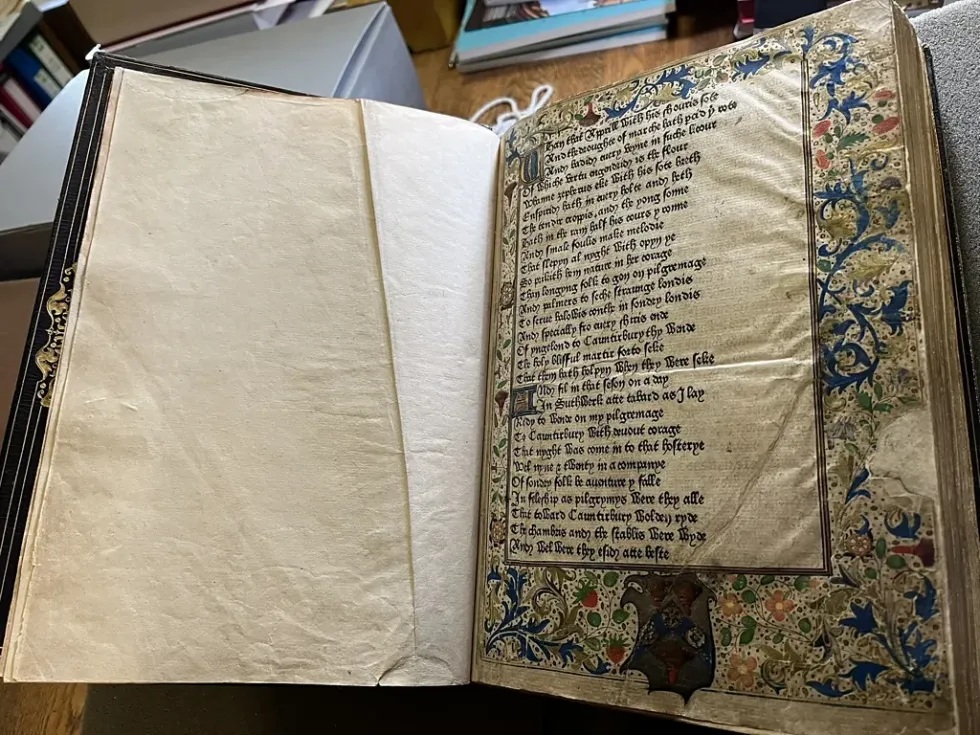 Whan that Apprill with his shouris sote
And the droughte of marche hath percid þ rote
And badid euery veyne in suche licour
Of whiche vertu engendrid is the flour
Whanne zepherus eke with his sote breth
Enspirid hath in euery holte and heth
The tendir croppis, and the yong sonne
Hath in the ram half his cours y ronne
And smale foulis make melodie
That slepyn al nyght with opyn ye
So prikith hem nature in her corage
Than longyng folk to gon on pilgremage
And palmers to seche straunge londis
To serue halowis couthe in sondry londis
And specially fro euery shiris ende
Of yngelond to Cauntirbury thy wende
The holy blisful martir forto seke
That them hath holpyn when they were seke
And fil in that seson on a day
In Suthwerk atte tabard as I lay
Redy to wende on my pilgremage
To Cauntirbury with deuout corage
That nyght was come in to that hosterye
Wel nyne & twenty in a companye
Of sondry folk be auenture y falle
In feleship as pilgrymys were they alle
That toward Cauntirbury wolden ryde
The chambris and the stablis were wyde
And wel were they esid atte beste